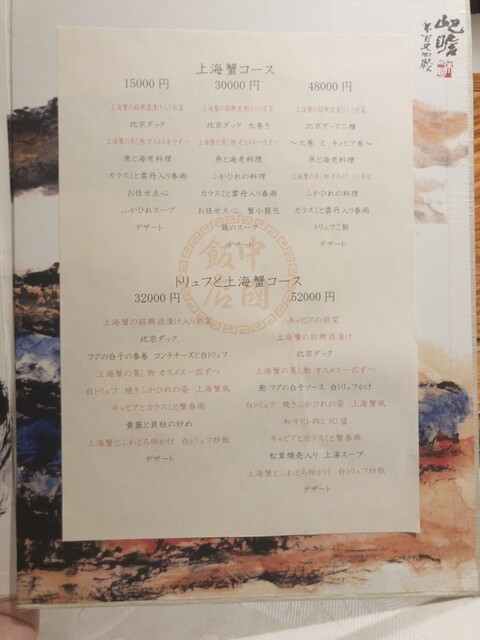 上海蟹コース
15000 円
上海蟹の紹興酒漬け入り前菜
北京ダック
上海蟹の蒸し物 オスメス半分ずつ
魚と海老料理
カラスミと雲丹入り春雨
お任せ点心
ふかひれスープ
デザート
30000 円
上海蟹の紹興酒漬け入り前菜
北京ダック 大巻き
上海蟹の蒸し物 オスメス一匹ずつ
魚と海老料理
ふかひれの料理
カラスミと雲丹入り春雨
お任せ点心、蟹小籠包
鶏のスープ
デザート
48000 円
上海蟹の紹興酒漬け入り前菜
北京ダック二種
～大巻 と キャビア巻～
魚と海老料理
上海蟹の蒸し物 オスメス
ふかひれの料理
カラスミと雲丹入り春雨
トリュフご飯
デザート
中國飯店
トリュフと上海蟹コース
32000 円
上海蟹の紹興酒漬け入り前菜
北京ダック
フグの白子の春巻 コンテチーズと白トリュフ
上海蟹の蒸し物 オスメス一匹ずつ
白トリュフ 焼きふかひれの姿 上海蟹風
キャビアとカラスミと蟹春雨
黄韮と貝柱の炒め
上海蟹とふわとろ卵かけ 白トリュフ炒飯
デザート
52000 円
キャビアの前菜
上海蟹の紹興酒漬け
北京ダック
上海蟹の蒸し物 オスメス一匹ずつ
鮑 フグの白子ソース 白トリュフかけ
白トリュフ 焼きふかひれの姿 上海蟹風
和牛ヒレ肉とXO醤
キャビアとカラスミと蟹春雨
松茸焼売入り 上湯スープ
上海蟹とふわとろ卵かけ 白トリュフ炒飯
デザート